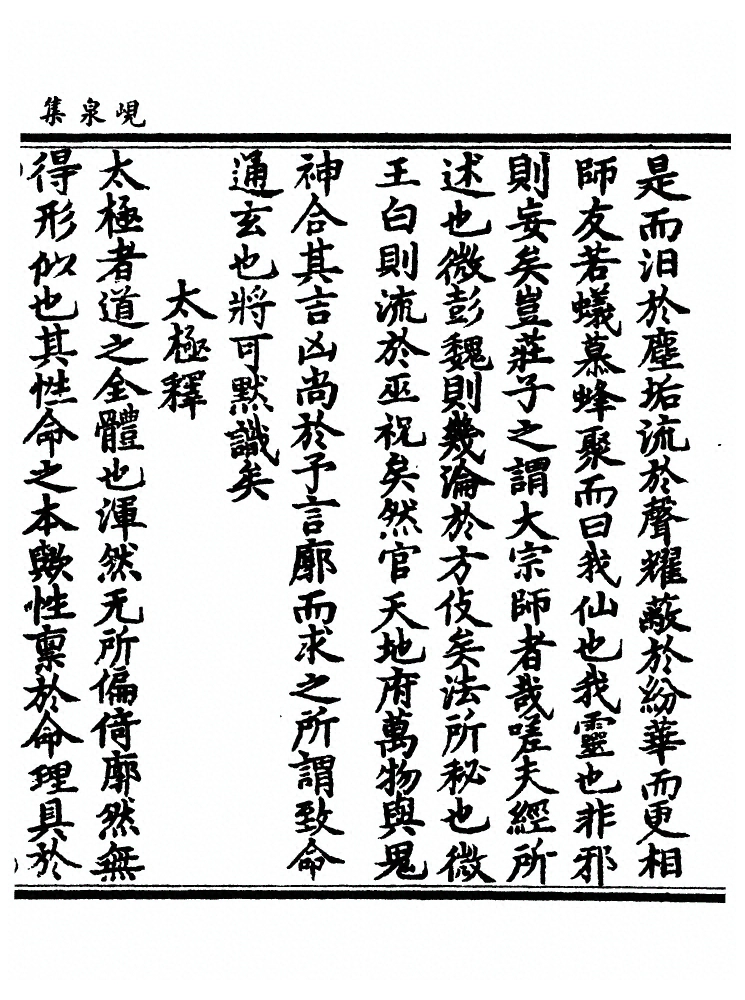 峴泉集
是而汨於塵垢流於聲耀蔽於紛華而更相
師友若蟻慕蜂聚而曰我仙也我靈也非邪
則妄矣豈莊子之謂大宗師者哉嗟夫經所
述也微彭魏則幾淪於方伎矣法所秘也微
王白則流於巫祝矣然官天地府萬物與鬼
神合其吉凶尚於予言廓而求之所謂致命
通玄也將可默識矣
太極釋
太極者道之全體也渾然无所偏倚廓然無
得形似也其性命之本歟性稟於命理具於